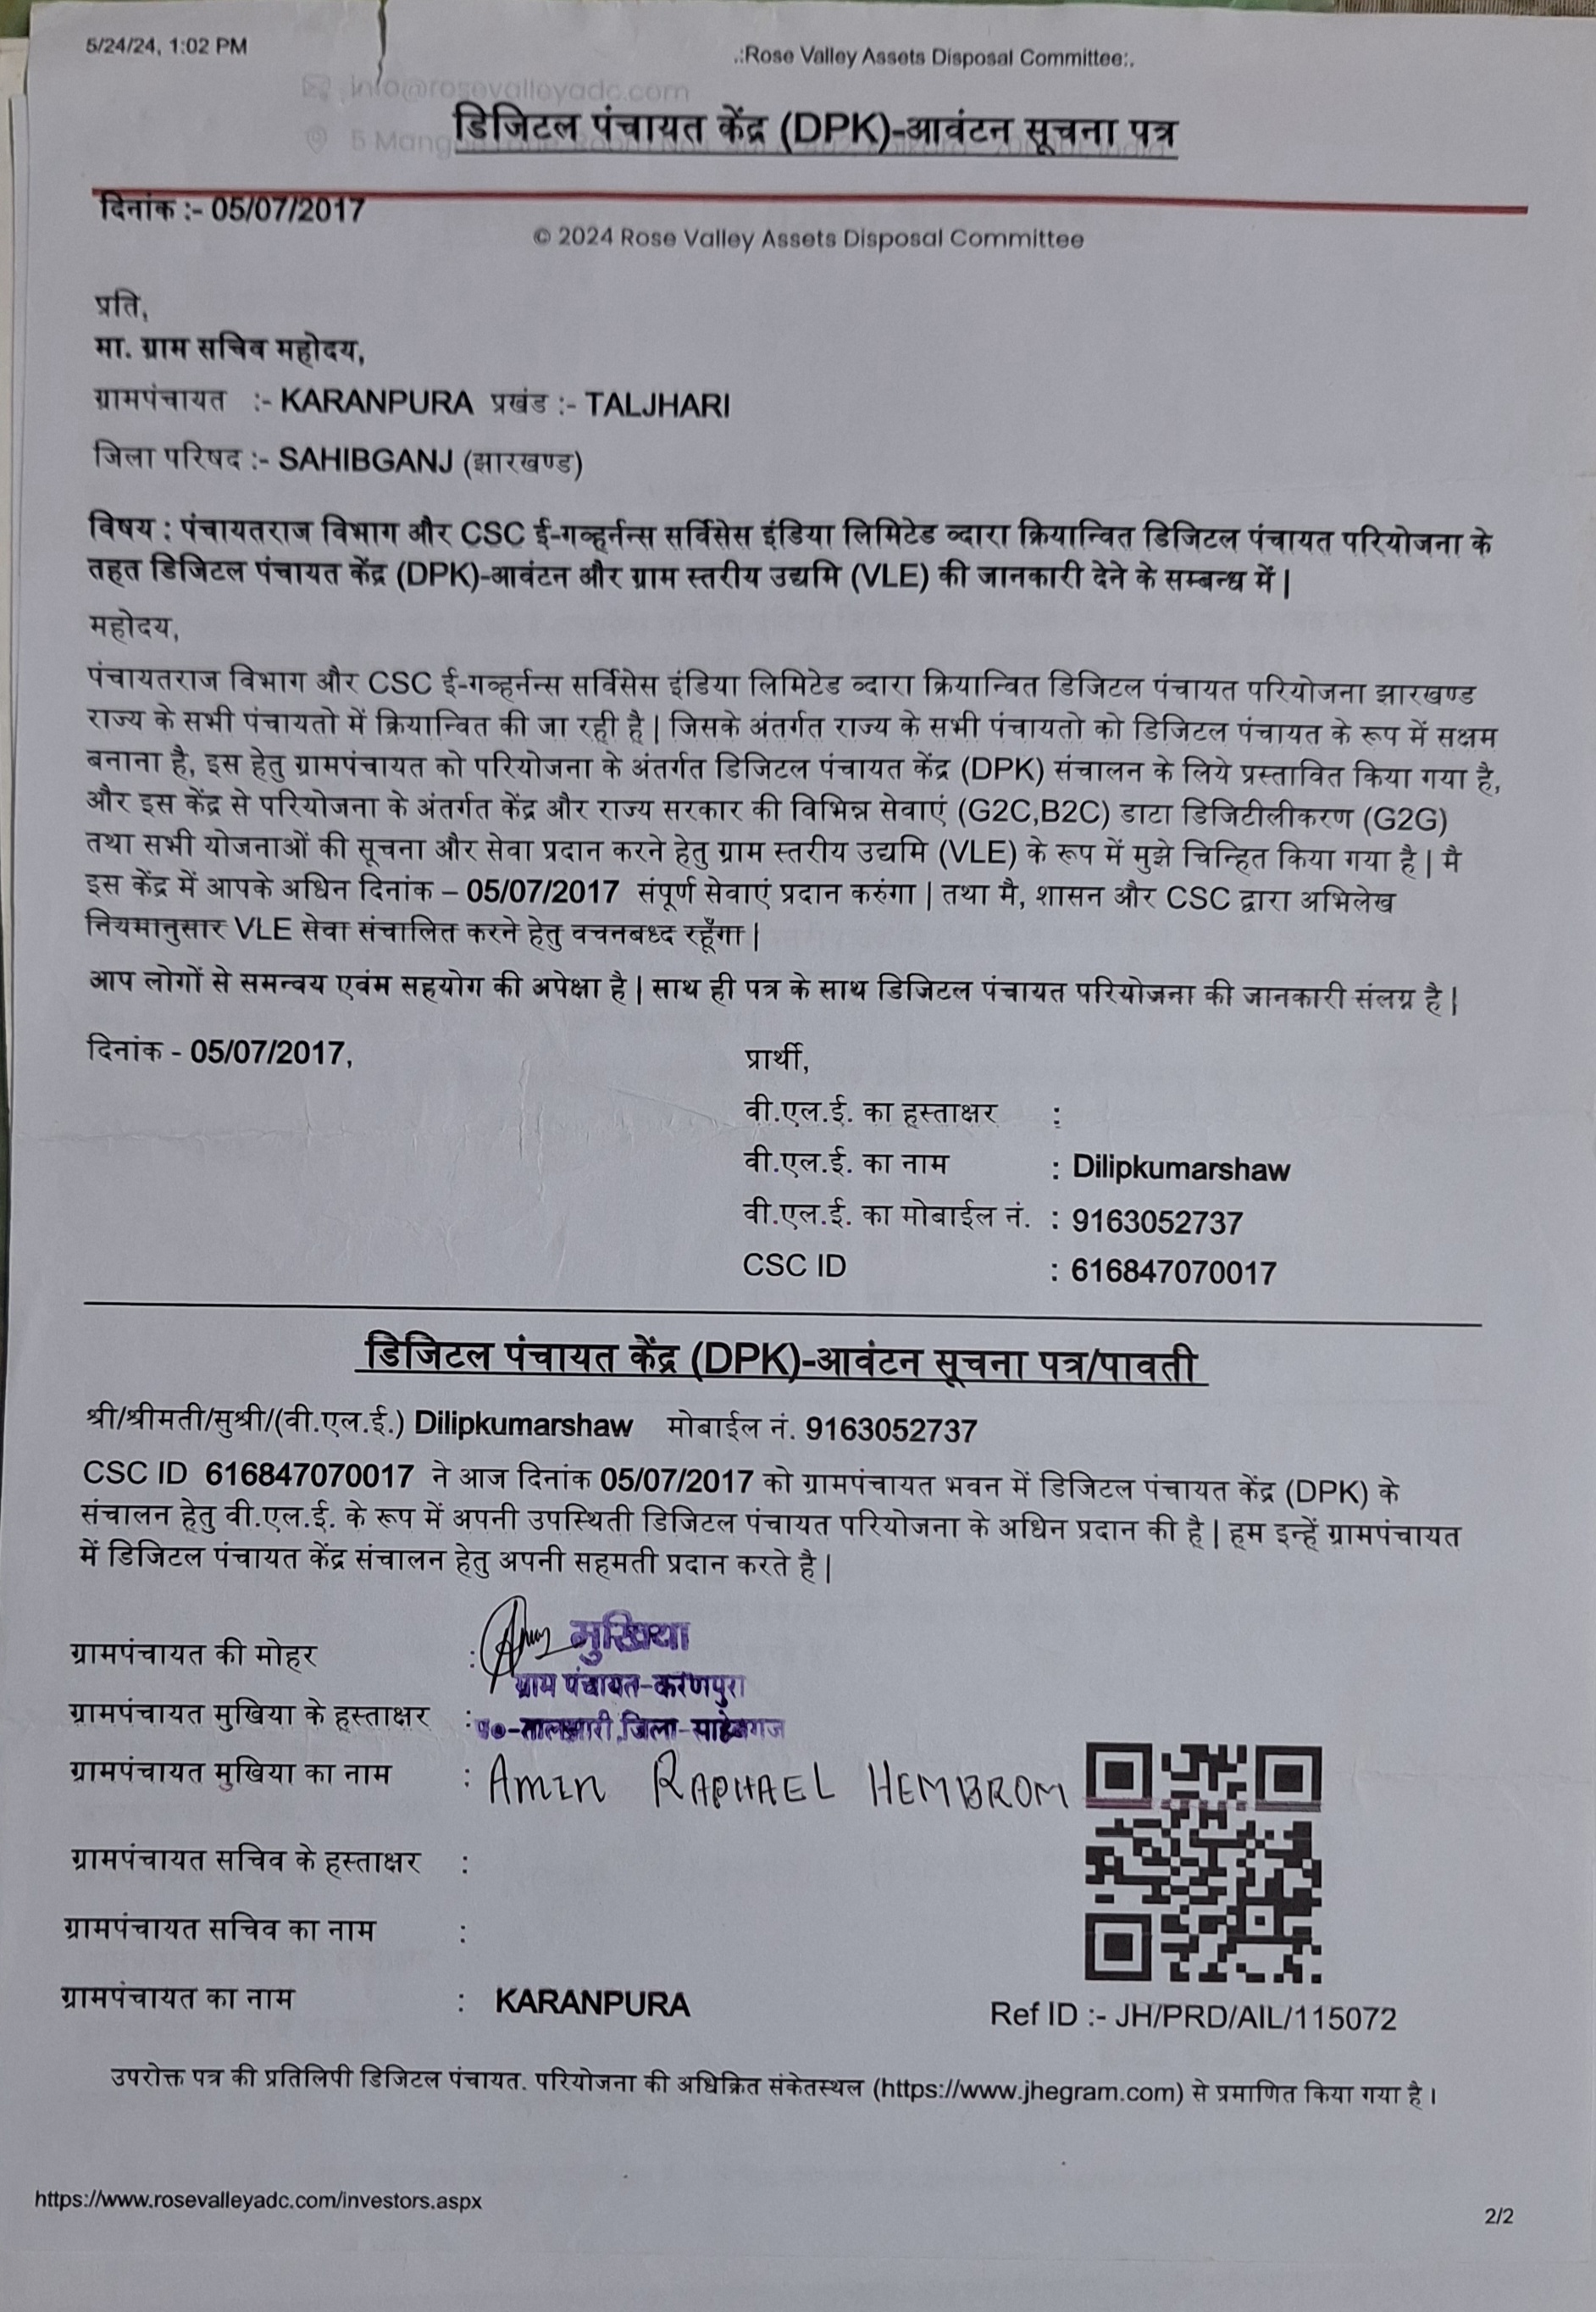 5/24/24, 1:02 PM
.:Rose Valley Assets Disposal Committee:.
info@rosevalleyadc.com
डिजिटल पंचायत केंद्र (DPK)-आवंटन सूचना पत्र
5 Mangoe Lane
दिनांक :- 05/07/2017
© 2024 Rose Valley Assets Disposal Committee
प्रति,
मा. ग्राम सचिव महोदय,
ग्रामपंचायत :- KARANPURA प्रखंड :- TALJHARI
जिला परिषद :- SAHIBGANJ (झारखण्ड)
विषय : पंचायतराज विभाग और CSC ई-गव्हर्नन्स सर्विसेस इंडिया लिमिटेड व्दारा क्रियान्वित डिजिटल पंचायत परियोजना के
तहत डिजिटल पंचायत केंद्र (DPK)-आवंटन और ग्राम स्तरीय उद्यमि (VLE) की जानकारी देने के सम्बन्ध में |
महोदय,
पंचायतराज विभाग और CSC ई-गव्हर्नन्स सर्विसेस इंडिया लिमिटेड व्दारा क्रियान्वित डिजिटल पंचायत परियोजना झारखण्ड
राज्य के सभी पंचायतो में क्रियान्वित की जा रही है | जिसके अंतर्गत राज्य के सभी पंचायतो को डिजिटल पंचायत के रूप में सक्षम
बनाना है, इस हेतु ग्रामपंचायत को परियोजना के अंतर्गत डिजिटल पंचायत केंद्र (DPK) संचालन के लिये प्रस्तावित किया गया है,
और इस केंद्र से परियोजना के अंतर्गत केंद्र और राज्य सरकार की विभिन्न सेवाएं (G2C,B2C) डाटा डिजिटीलीकरण (G2G)
तथा सभी योजनाओं की सूचना और सेवा प्रदान करने हेतु ग्राम स्तरीय उद्यमि (VLE) के रूप में मुझे चिन्हित किया गया है | मै
इस केंद्र में आपके अधिन दिनांक – 05/07/2017 संपूर्ण सेवाएं प्रदान करुंगा | तथा मै, शासन और CSC द्वारा अभिलेख
नियमानुसार VLE सेवा संचालित करने हेतु वचनबध्द रहूँगा |
आप लोगों से समन्वय एवंम सहयोग की अपेक्षा है | साथ ही पत्र के साथ डिजिटल पंचायत परियोजना की जानकारी संलग्न है |
दिनांक - 05/07/2017,
प्रार्थी,
वी.एल.ई. का हस्ताक्षर :
वी.एल.ई. का नाम : Dilipkumarshaw
वी.एल.ई. का मोबाईल नं. : 9163052737
CSC ID : 616847070017
डिजिटल पंचायत केंद्र (DPK)-आवंटन सूचना पत्र/पावती
श्री/श्रीमती/सुश्री/(वी.एल.ई.) Dilipkumarshaw मोबाईल नं. 9163052737
CSC ID 616847070017 ने आज दिनांक 05/07/2017 को ग्रामपंचायत भवन में डिजिटल पंचायत केंद्र (DPK) के
संचालन हेतु वी.एल.ई. के रूप में अपनी उपस्थिती डिजिटल पंचायत परियोजना के अधिन प्रदान की है | हम इन्हें ग्रामपंचायत
में डिजिटल पंचायत केंद्र संचालन हेतु अपनी सहमती प्रदान करते है |
ग्रामपंचायत की मोहर : मुखिया
ग्राम पंचायत-करणपुरा
ग्रामपंचायत मुखिया के हस्ताक्षर : प्र०-तालझारी,जिला-साहेबगंज
ग्रामपंचायत मुखिया का नाम : AMIN RAPHAEL HEMBROM
ग्रामपंचायत सचिव के हस्ताक्षर :
ग्रामपंचायत सचिव का नाम :
ग्रामपंचायत का नाम : KARANPURA
Ref ID :- JH/PRD/AIL/115072
उपरोक्त पत्र की प्रतिलिपी डिजिटल पंचायत. परियोजना की अधिक्रित संकेतस्थल (https://www.jhegram.com) से प्रमाणित किया गया है ।
https://www.rosevalleyadc.com/investors.aspx
2/2